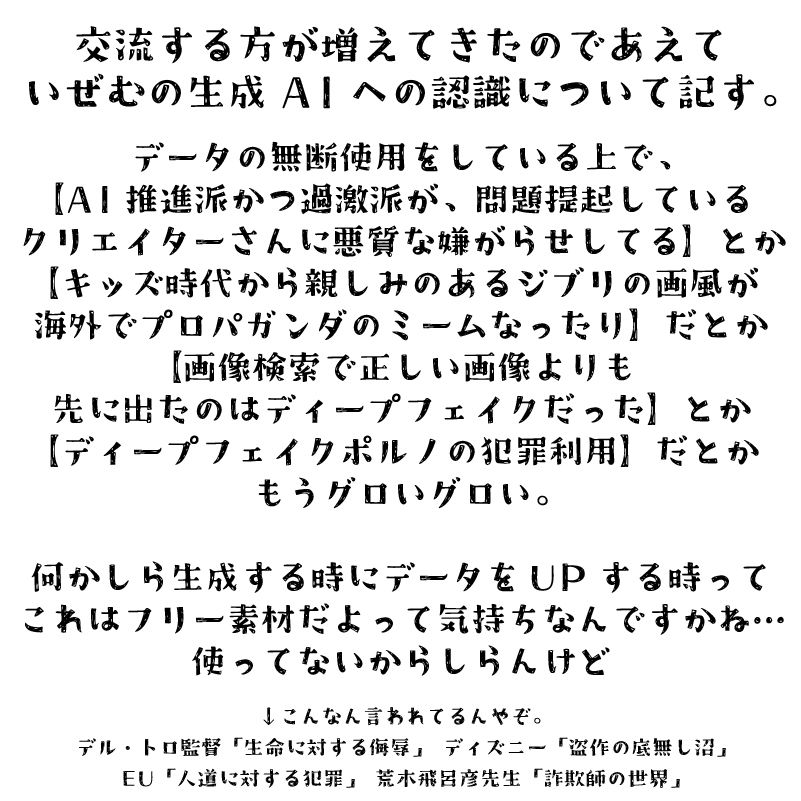 交流する方が増えてきたのであえて
いぜむの生成AIへの認識について記す。
データの無断使用をしている上で、
【AI推進派かつ過激派が、問題提起している
クリエイターさんに悪質な嫌がらせしてる】とか
【キッズ時代から親しみのあるジブリの画風が
海外でプロパガンダのミームなったり】だとか
【画像検索で正しい画像よりも
先に出たのはディープフェイクだった】とか
【ディープフェイクポルノの犯罪利用】だとか
もうグロいグロい。
何かしら生成する時にデータをUPする時って
これはフリー素材だよって気持ちなんですかね…
使ってないからしらんけど
↓こんなん言われてるんやぞ。
デル・トロ監督「生命に対する侮辱」 ディズニー「盗作の底無し沼」
EU「人道に対する犯罪」 荒木飛呂彦先生「詐欺師の世界」